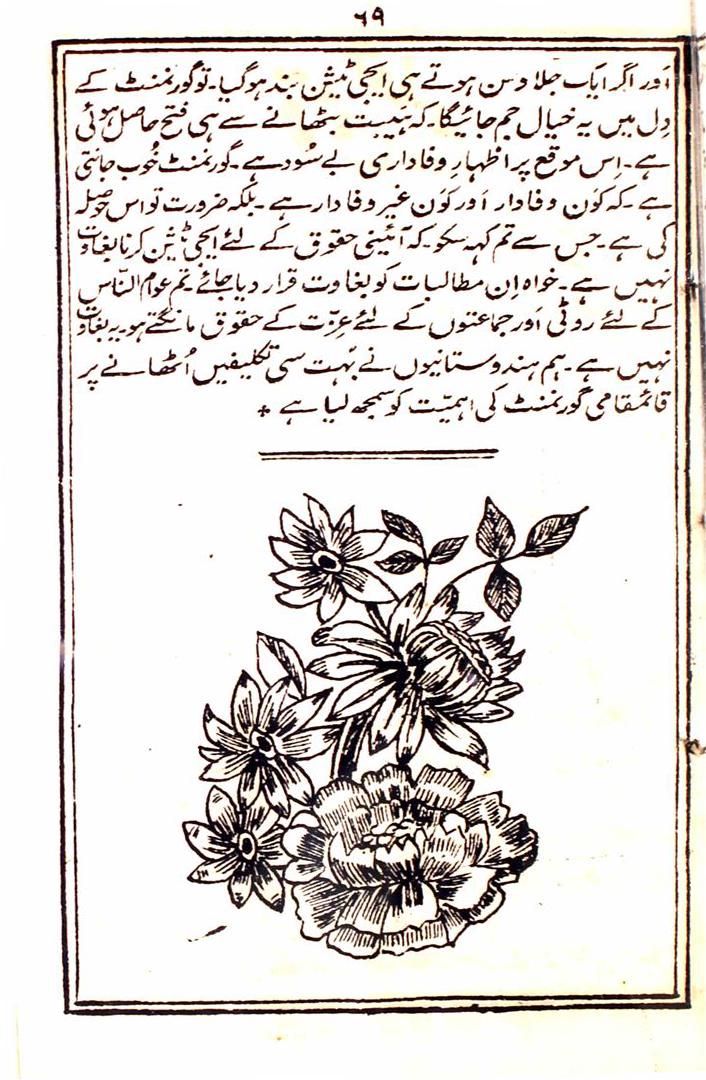 ۶۹
اَور اگر ایک جلا وسن ہوتے ہی ایجی ٹیشن بند ہوگیا۔ تو گورنمنٹ کے
دِل میں یہ خیال جم جائیگا۔ کہ ہَیبت بٹھانے سے ہی فتح حاصل ہوئی
ہے۔ اِس موقع پر اظہارِ وفاداری بے سُود ہے۔ گورنمنٹ خُوب جانتی
ہے۔ کہ کَون وفادار اَور کَون غیر وفادار ہے۔ بلکہ ضرورت تو اس حوصلہ
کی ہے۔ جس سے تم کہہ سکو۔ کہ آئینی حقوق کے لئے ایجی ٹیشن کرنا بغاوت
نہیں ہے۔ خواہ اِن مطالبات کو بغاوت قرار دیا جائے۔ تم عوام النّاس
کے لئے روٹی اَور جماعتوں کے لئے عزّت کے حقوق مانگتے ہو۔ یہ بغاوت
نہیں ہے۔ ہم ہندوستانیوں نے بہت سی تکلیفیں اُٹھانے پر
قائمقامی گورنمنٹ کی اہمیّت کو سمجھ لیا ہے *